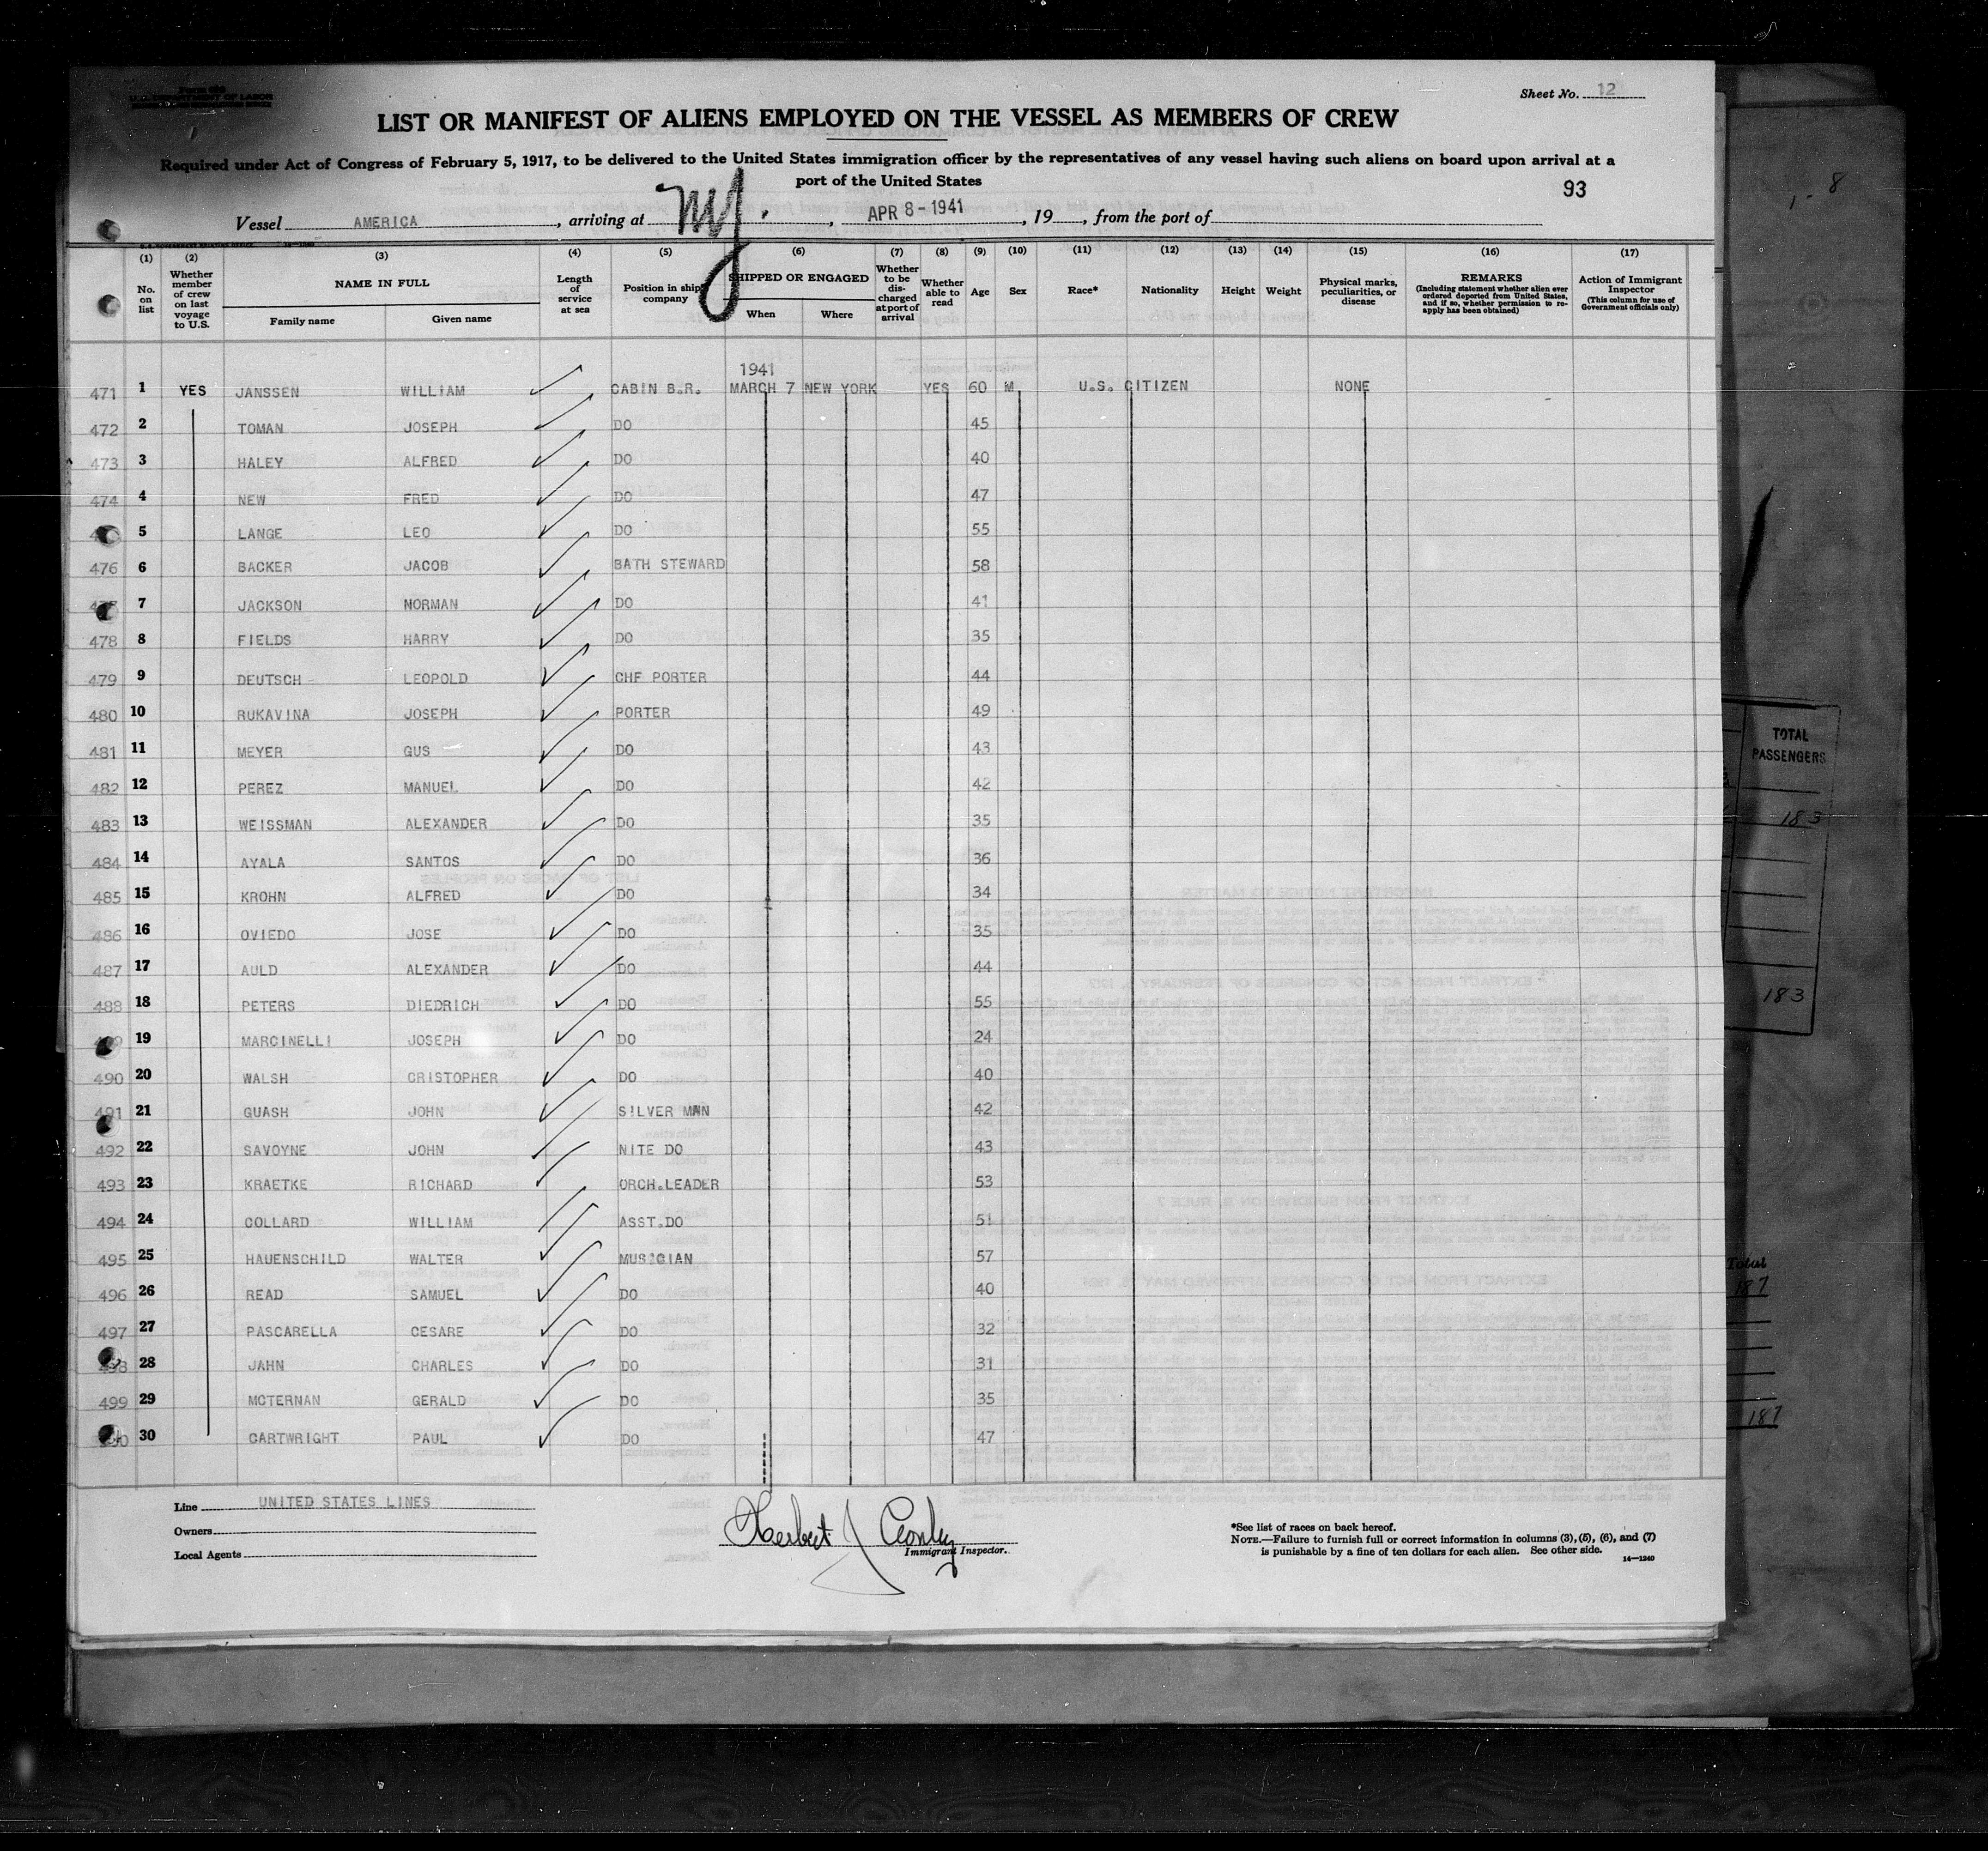 Sheet No. 12
LIST OR MANIFEST OF ALIENS EMPLOYED ON THE VESSEL AS MEMBERS OF CREW
Required under Act of Congress of February 5, 1917, to be delivered to the United States immigration officer by the representatives of any vessel having such aliens on board upon arrival at a
port of the United States
93
Vessel AMERICA, arriving at NY., APR 8-1941, 19, from the port of
(1) (2) (3) (4) (5) (6) (7) (8) (9) (10) (11) (12) (13) (14) (15) (16) (17)
No. on list Whether member of crew on last voyage to U.S. NAME IN FULL Family name Given name Length of service at sea Position in ship's company SHIPPED OR ENGAGED When Where Whether to be discharged at port of arrival Whether able to read Age Sex Race* Nationality Height Weight Physical marks, peculiarities, or disease REMARKS (Including statement whether alien ever ordered deported from United States, and if so, whether permission to reapply has been obtained) Action of Immigrant Inspector (This column for use of Government officials only)
1941
471 1 YES JANSSEN WILLIAM CABIN B.R. MARCH 7 NEW YORK YES 60 M U.S. CITIZEN NONE
472 2 TOMAN JOSEPH DO 45
473 3 HALEY ALFRED DO 40
474 4 NEW FRED DO 47
5 LANGE LEO DO 55
476 6 BACKER JACOB BATH STEWARD 58
7 JACKSON NORMAN DO 41
478 8 FIELDS HARRY DO 35
479 9 DEUTSCH LEOPOLD CHF PORTER 44
480 10 RUKAVINA JOSEPH PORTER 49
481 11 MEYER GUS DO 43
482 12 PEREZ MANUEL DO 42
483 13 WEISSMAN ALEXANDER DO 35
484 14 AYALA SANTOS DO 36
485 15 KROHN ALFRED DO 34
486 16 OVIEDO JOSE DO 35
487 17 AULD ALEXANDER DO 44
488 18 PETERS DIEDRICH DO 55
19 MARCINELLI JOSEPH DO 24
490 20 WALSH CRISTOPHER DO 40
491 21 GUASH JOHN SILVER MAN 42
492 22 SAVOYNE JOHN NITE DO 43
493 23 KRAETKE RICHARD ORCH.LEADER 53
494 24 COLLARD WILLIAM ASST.DO 51
495 25 HAUENSCHILD WALTER MUSICIAN 57
496 26 READ SAMUEL DO 40
497 27 PASCARELLA CESARE DO 32
498 28 JAHN CHARLES DO 31
499 29 MCTERNAN GERALD DO 35
30 CARTWRIGHT PAUL DO 47
Line UNITED STATES LINES
Owners
Local Agents
Herbert J Conley
Immigrant Inspector.
*See list of races on back hereof.
NOTE.—Failure to furnish full or correct information in columns (3), (5), (6), and (7)
is punishable by a fine of ten dollars for each alien. See other side.
14—1240
TOTAL
PASSENGERS
183
183
Total
187
187